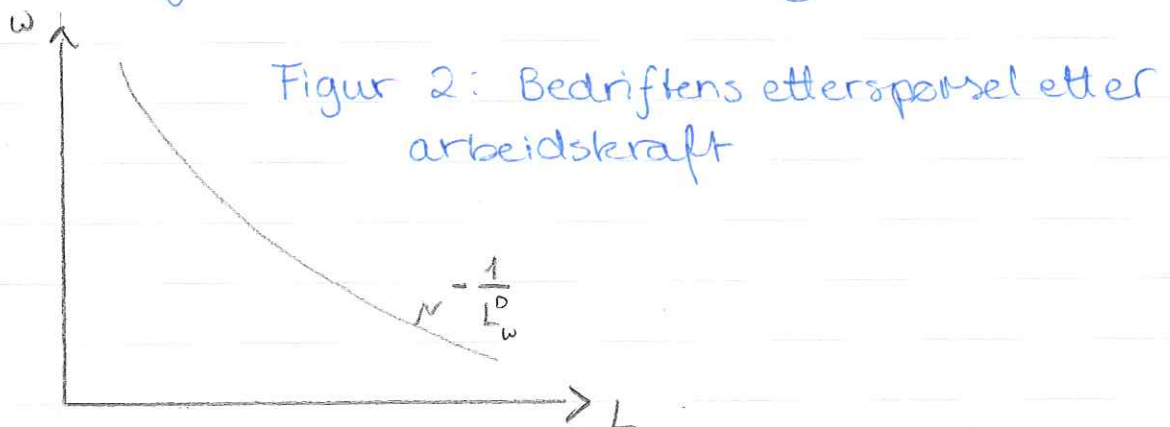 w
Figur 2: Bedriftens etterspørsel etter
arbeidskraft
- 1/L^D_w
L